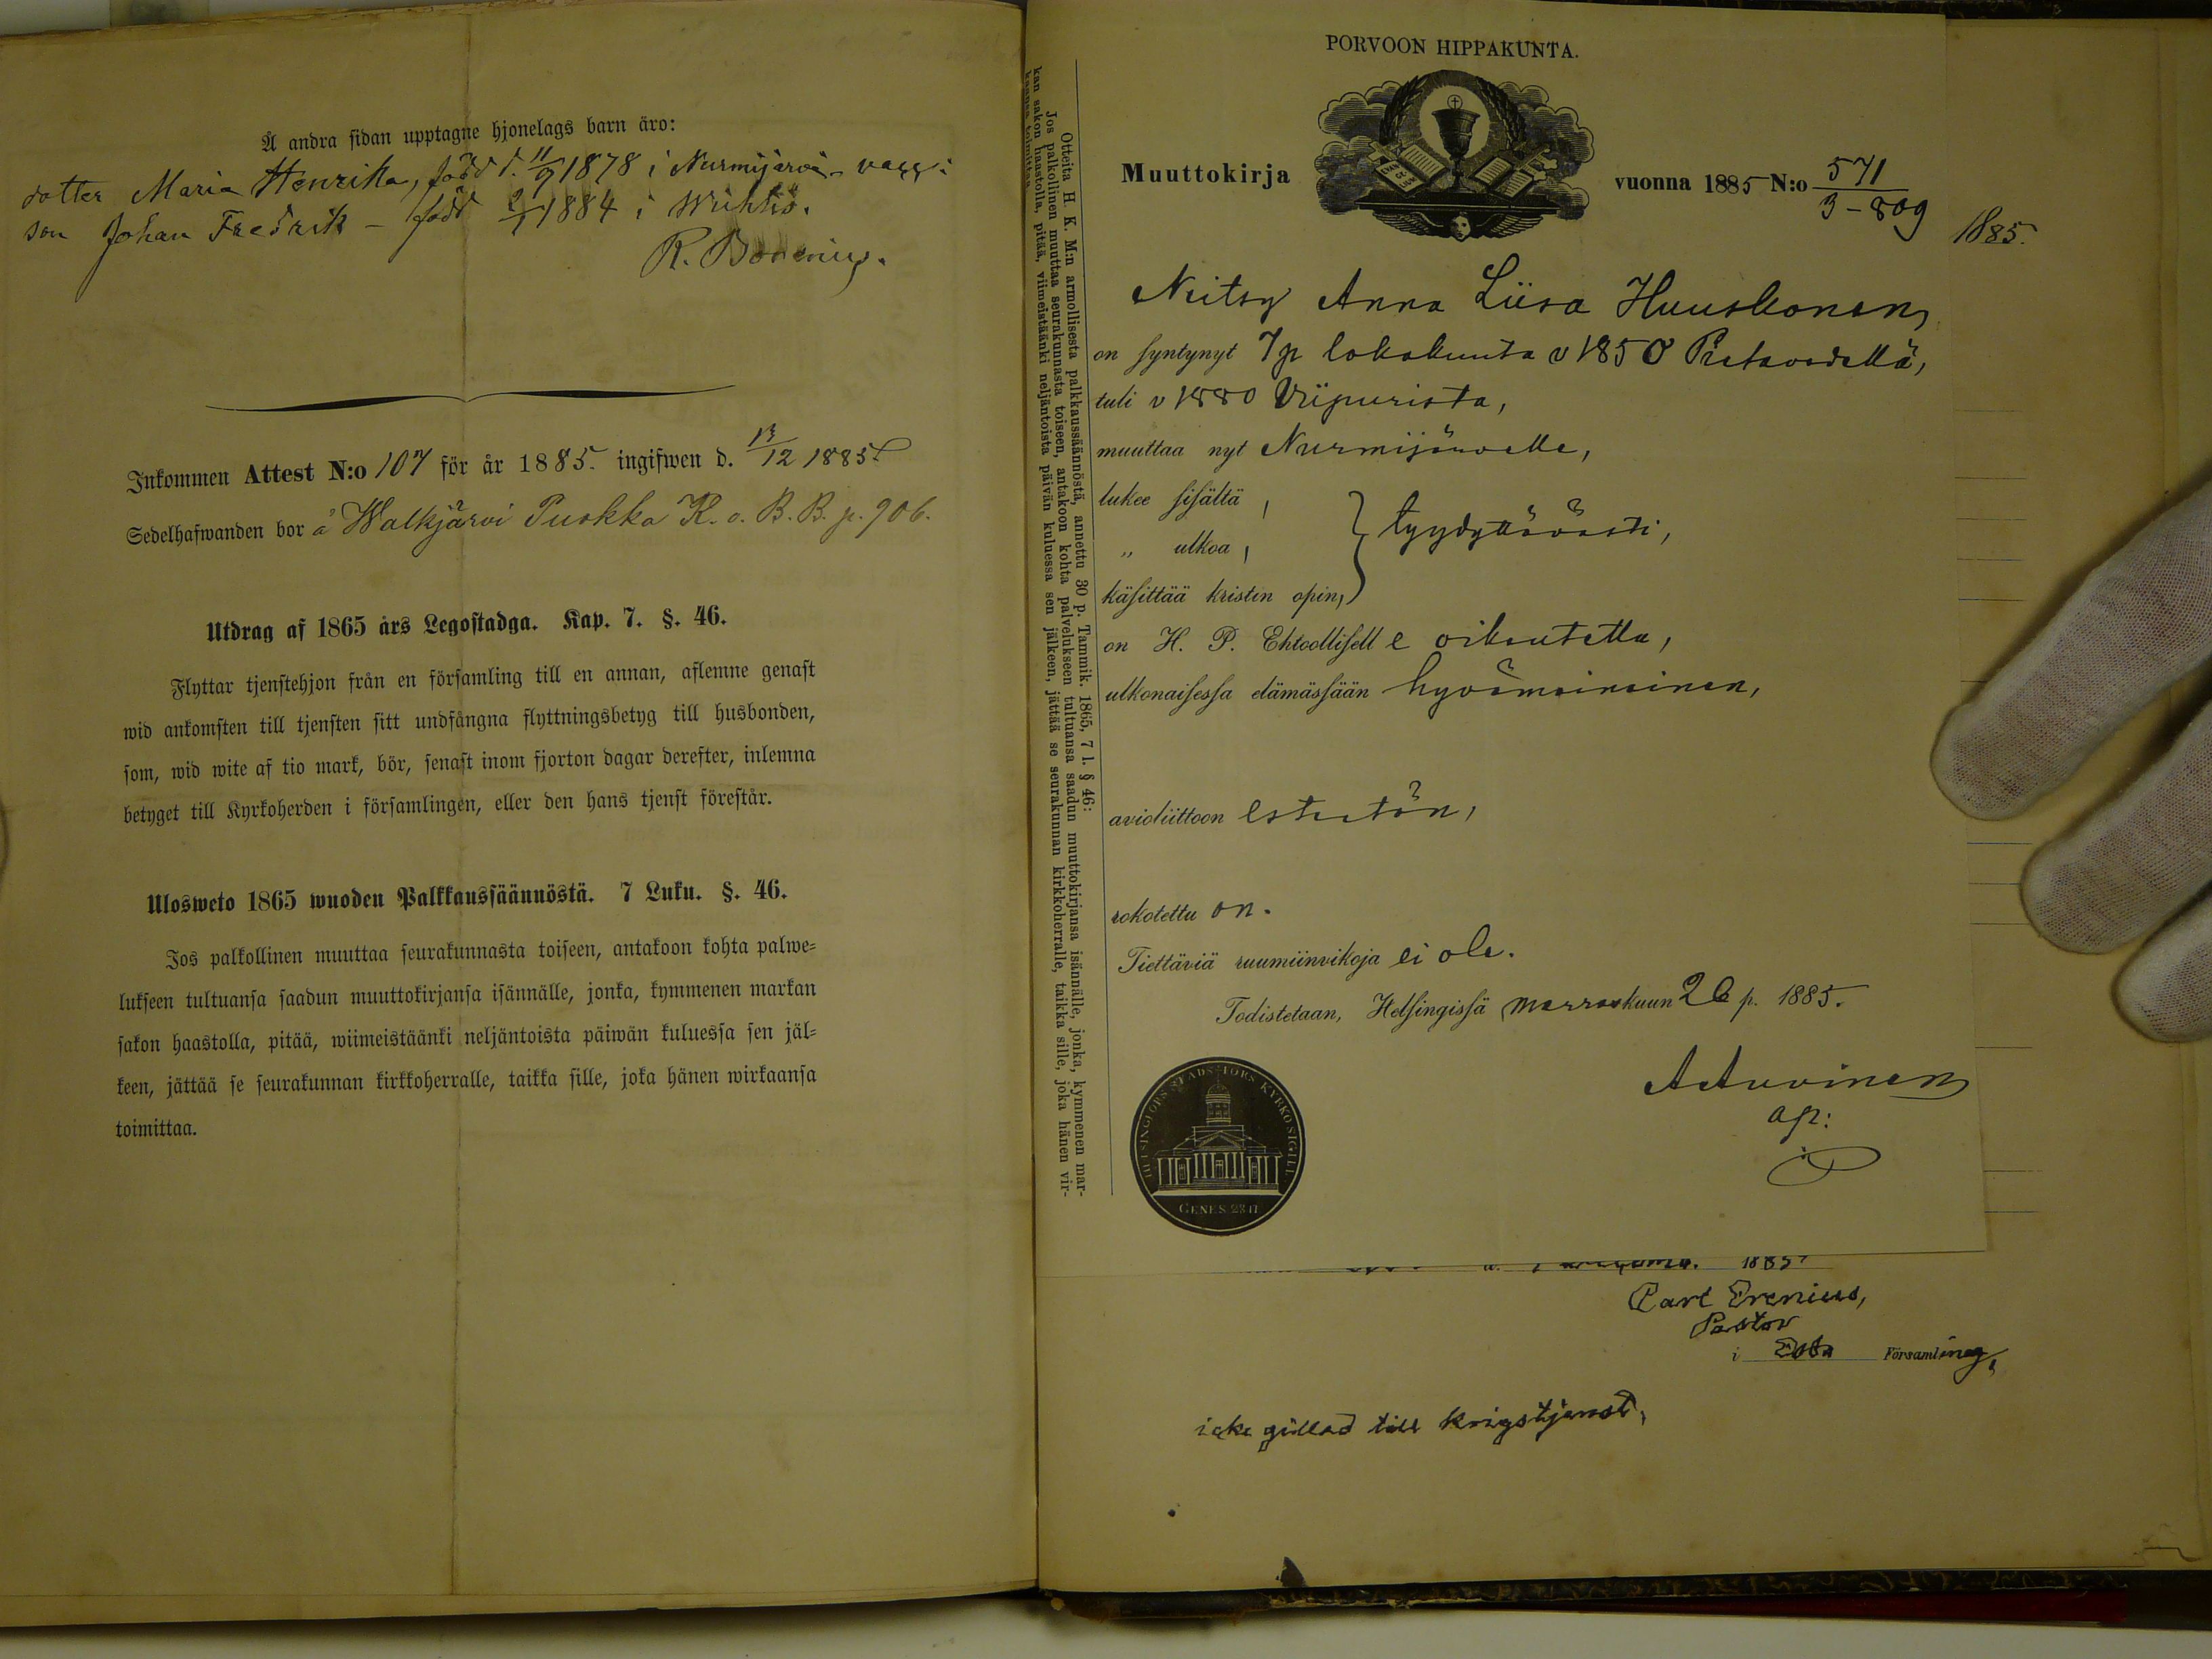 Å andra sidan upptagne hjonelags barn äro:
dotter Maria Henrika, född d. 11/9 1878 i Nurmijärvi
son Johan Fredrik – född 2/1 1884 i Wichtis.
Inkommen Attest N:o 107 för år 1885. ingifwen d. 13/12 1885.
Sedelhafwanden bor å Walkjärvi Puokka K. o. B. B. p. 906.
Utdrag af 1865 års Legostadga. Kap. 7. §. 46.
Flyttar tjenstehjon från en församling till en annan, aflemne genast
wid ankomsten till tjensten sitt undfångna flyttningsbetyg till husbonden,
som, wid wite af tio mark, bör, senast inom fjorton dagar derefter, inlemna
betyget till Kyrkoherden i församlingen, eller den hans tjenst förestår.
Ulosweto 1865 wuoden Palkkaussäännöstä. 7 Luku. §. 46.
Jos palkollinen muuttaa seurakunnasta toiseen, antakoon kohta palwe=
lukseen tultuansa saadun muuttokirjansa isännälle, jonka, kymmenen markan
sakon haastolla, pitää, wiimeistäänki neljäntoista päiwän kuluessa sen jäl=
keen, jättää se seurakunnan kirkkoherralle, taikka sille, joka hänen wirkaansa
toimittaa.
Otteita H. K. M:n armollisesta palkkaussäännöstä, annettu 30 p. Tammik. 1865, 7 l. § 46:
Jos palkollinen muuttaa seurakunnasta toiseen, antakoon kohta palvelukseen tultuansa saadun muuttokirjansa isännälle, jonka, kymmenen mar-
kan sakon haastolla, pitää, viimeistäänki neljäntoista päivän kuluessa sen jälkeen, jättää se seurakunnan kirkkoherralle, taikka sille, joka hänen vir-
kaansa toimittaa.
PORVOON HIPPAKUNTA.
Muuttokirja
vuonna 1885 N:o 571
3–809
1885.
Neitsy Anna Liisa Huuskonen,
on syntynyt 7 p lokakuuta v 1850 Pietavedellä,
tuli v 1880 Viipurista,
muuttaa nyt Nurmijärvelle,
lukee sisältä,
„ ulkoa, } tyydyttävästi,
käsittää kristin opin,
on H. P. Ehtoollisell e oikeutettu,
ulkonaisessa elämässään hyvämaineinen,
avioliittoon esteetön,
rokotettu on.
Tiettäviä ruumiinvikoja ei ole.
Todistetaan, Helsingissä marraskuun 26 p. 1885.
A Auvinen
ap:
HELSINGFORS STADS FÖRS KYRKOSIGILL
GENES. 28.17
1885
Carl Erenius,
Pastor
i Esbo Församling,
icke gillad till krigstjenst,